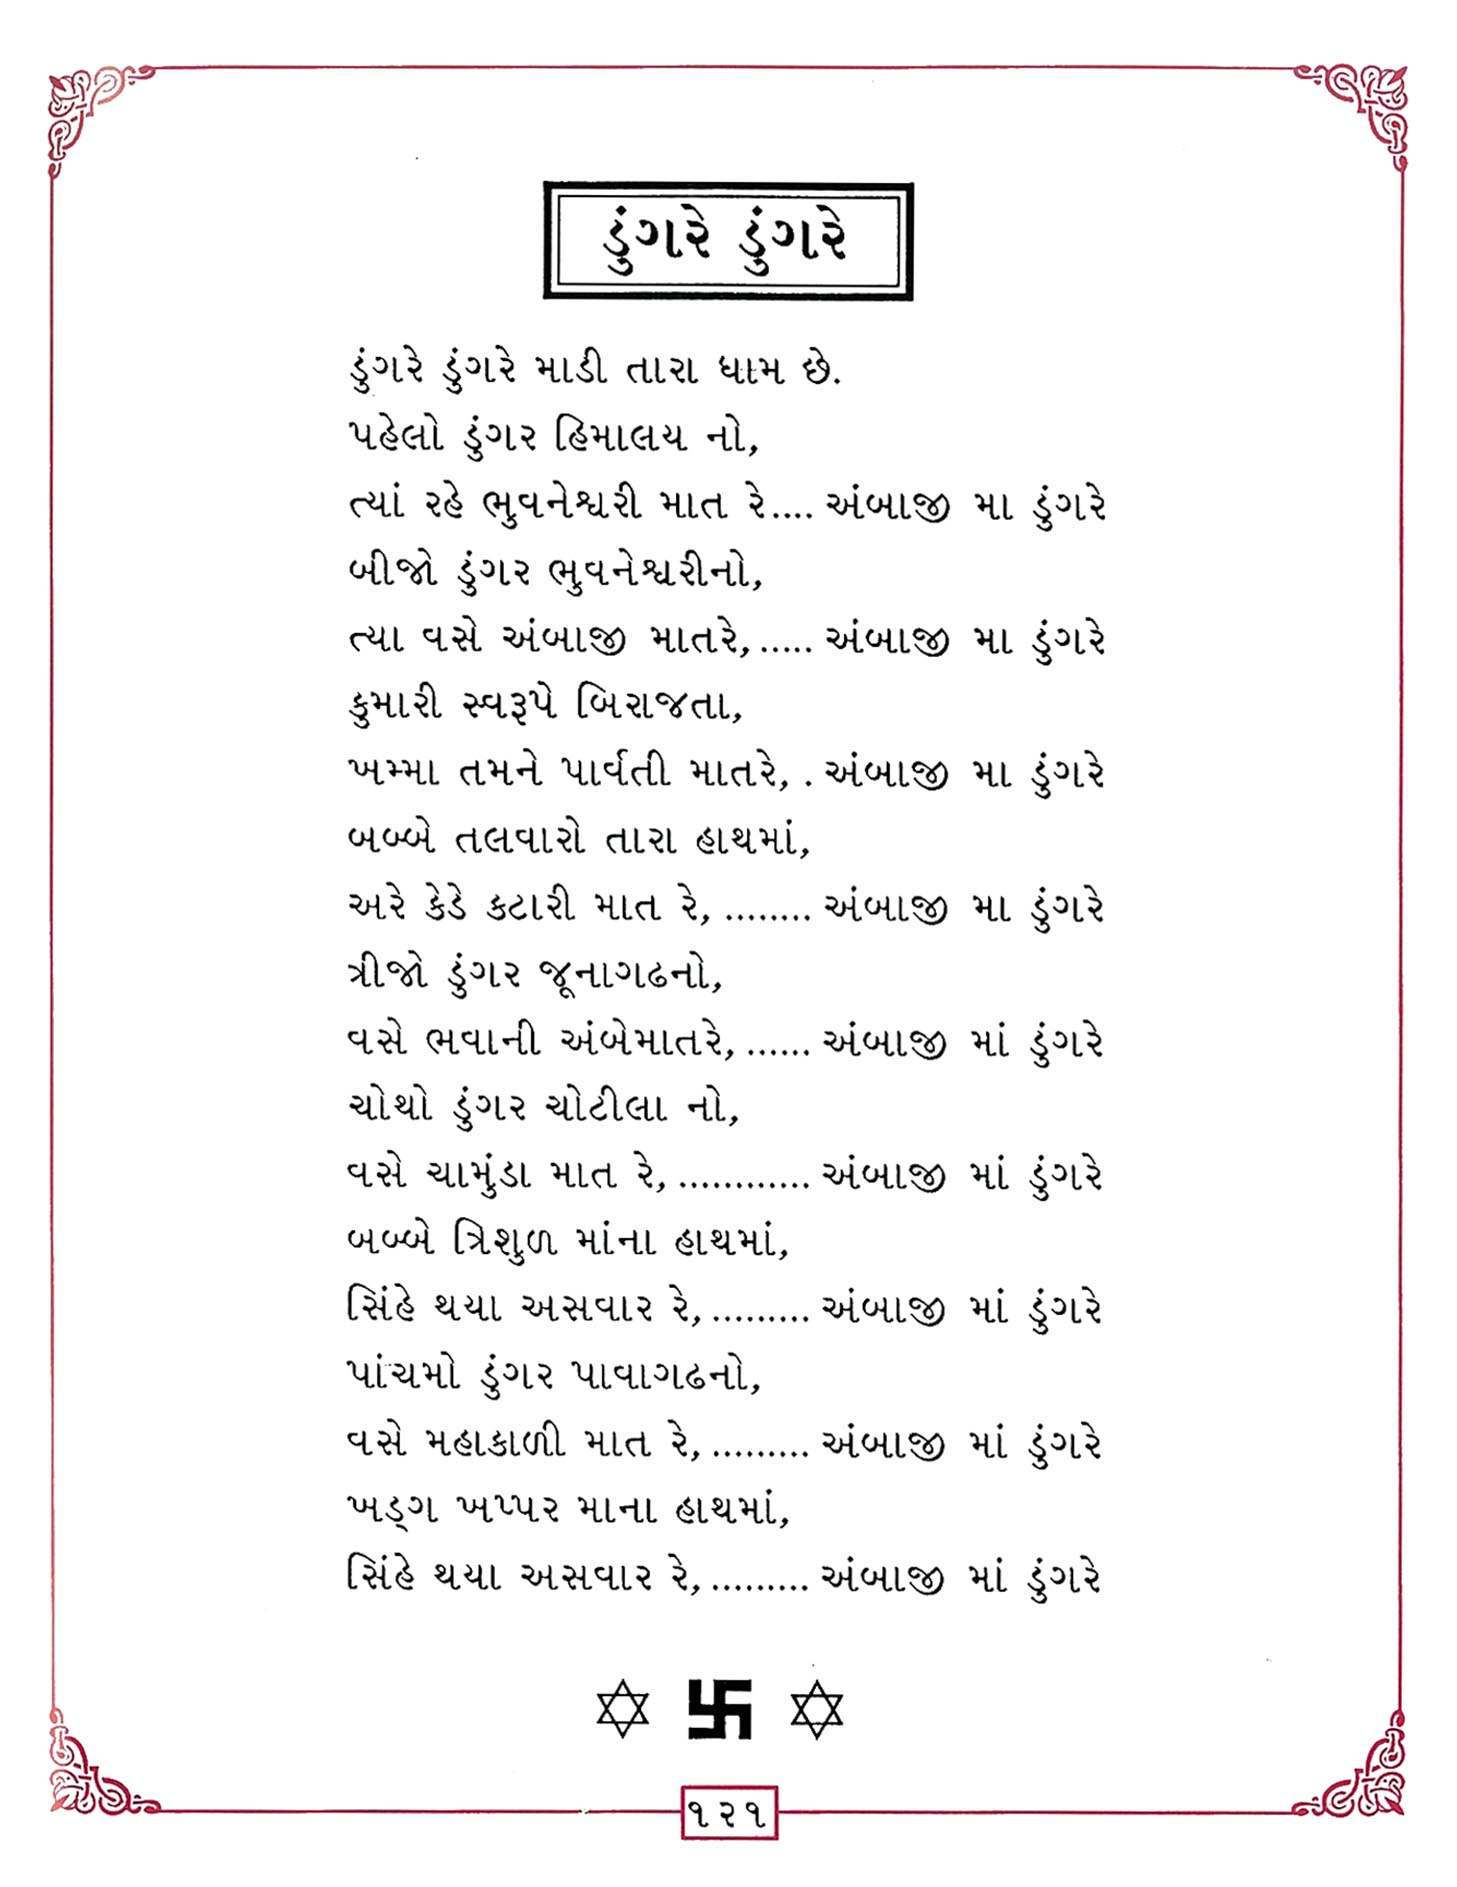 ડુંગરે ડુંગરે
ડુંગરે ડુંગરે માડી તારા ધામ છે.
પહેલો ડુંગર હિમાલય નો,
ત્યાં રહે ભુવનેશ્વરી માત રે.... અંબાજી મા ડુંગરે
બીજો ડુંગર ભુવનેશ્વરીનો,
ત્યા વસે અંબાજી માતરે,..... અંબાજી મા ડુંગરે
કુમારી સ્વરૂપે બિરાજતા,
ખમ્મા તમને પાર્વતી માતરે, . અંબાજી મા ડુંગરે
બબ્બે તલવારો તારા હાથમાં,
અરે કેડે કટારી માત રે, ........ અંબાજી મા ડુંગરે
ત્રીજો ડુંગર જૂનાગઢનો,
વસે ભવાની અંબેમાતરે, ...... અંબાજી માં ડુંગરે
ચોથો ડુંગર ચોટીલા નો,
વસે ચામુંડા માત રે, ............ અંબાજી માં ડુંગરે
બબ્બે ત્રિશુળ માંના હાથમાં,
સિંહે થયા અસવાર રે, ......... અંબાજી માં ડુંગરે
પાંચમો ડુંગર પાવાગઢનો,
વસે મહાકાળી માત રે, ......... અંબાજી માં ડુંગરે
ખડ્ગ ખપ્પર માના હાથમાં,
સિંહે થયા અસવાર રે, ......... અંબાજી માં ડુંગરે
૧૨૧